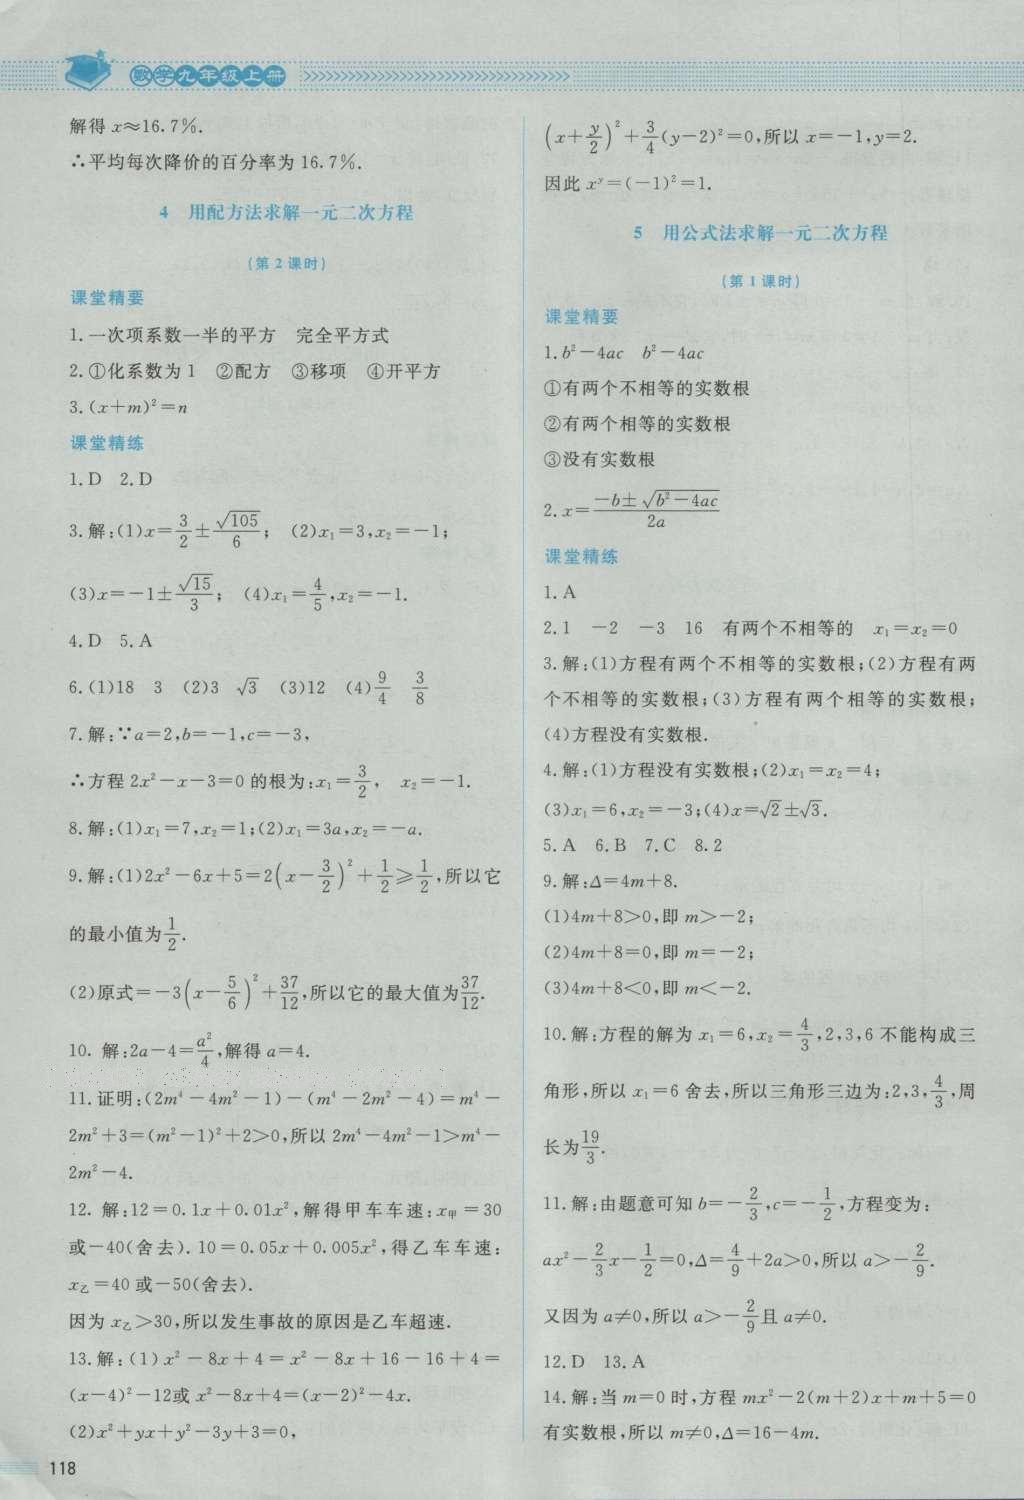 数学九年级上册
解得 x≈16.7%.
∴平均每次降价的百分率为 16.7%.
4 用配方法求解一元二次方程
(第 2 课时)
课堂精要
1. 一次项系数一半的平方 完全平方式
2. ①化系数为 1 ②配方 ③移项 ④开平方
3. (x+m)²=n
课堂精练
1. D 2. D
3. 解:(1)x=3/2±√105/6; (2)x₁=3,x₂=-1;
(3)x=-1±√15/3; (4)x₁=4/5,x₂=-1.
4. D 5. A
6. (1)18 3 (2)3 √3 (3)12 (4)9/4 3/8
7. 解:∵a=2,b=-1,c=-3,
∴方程 2x²-x-3=0 的根为:x₁=3/2, x₂=-1.
8. 解:(1)x₁=7,x₂=1;(2)x₁=3a,x₂=-a.
9. 解:(1)2x²-6x+5=2(x-3/2)²+1/2≥1/2,所以它
的最小值为1/2.
(2)原式=-3(x-5/6)²+37/12,所以它的最大值为37/12.
10. 解:2a-4=a²/4,解得 a=4.
11. 证明:(2m⁴-4m²-1)-(m⁴-2m²-4)=m⁴-
2m²+3=(m²-1)²+2>0,所以 2m⁴-4m²-1>m⁴-
2m²-4.
12. 解:12=0.1x+0.01x²,解得甲车车速:x甲=30
或-40(舍去). 10=0.05x+0.005x²,得乙车车速:
x乙=40 或-50(舍去).
因为 x乙>30,所以发生事故的原因是乙车超速.
13. 解:(1)x²-8x+4=x²-8x+16-16+4=
(x-4)²-12或 x²-8x+4=(x-2)²-4x.
(2)x²+yx+y²-3y+3=0,
118
(x+y/2)²+3/4(y-2)²=0,所以 x=-1,y=2.
因此 xʸ=(-1)²=1.
5 用公式法求解一元二次方程
(第 1 课时)
课堂精要
1. b²-4ac b²-4ac
①有两个不相等的实数根
②有两个相等的实数根
③没有实数根
2. x=(-b±√(b²-4ac))/2a
课堂精练
1. A
2. 1 -2 -3 16 有两个不相等的 x₁=x₂=0
3. 解:(1)方程有两个不相等的实数根;(2)方程有两
个不相等的实数根;(3)方程有两个相等的实数根;
(4)方程没有实数根.
4. 解:(1)方程没有实数根;(2)x₁=x₂=4;
(3)x₁=6,x₂=-3;(4)x=√2±√3.
5. A 6. B 7. C 8. 2
9. 解:Δ=4m+8.
(1)4m+8>0,即 m>-2;
(2)4m+8=0,即 m=-2;
(3)4m+8<0,即 m<-2.
10. 解:方程的解为 x₁=6,x₂=4/3,2,3,6 不能构成三
角形,所以 x₁=6 舍去,所以三角形三边为:2,3,4/3,周
长为19/3.
11. 解:由题意可知 b=-2/3,c=-1/2,方程变为:
ax²-2/3x-1/2=0,Δ=4/9+2a>0,所以 a>-2/9.
又因为 a≠0,所以 a>-2/9且 a≠0.
12. D 13. A
14. 解:当 m=0 时,方程 mx²-2(m+2)x+m+5=0
有实数根,所以 m≠0,Δ=16-4m.